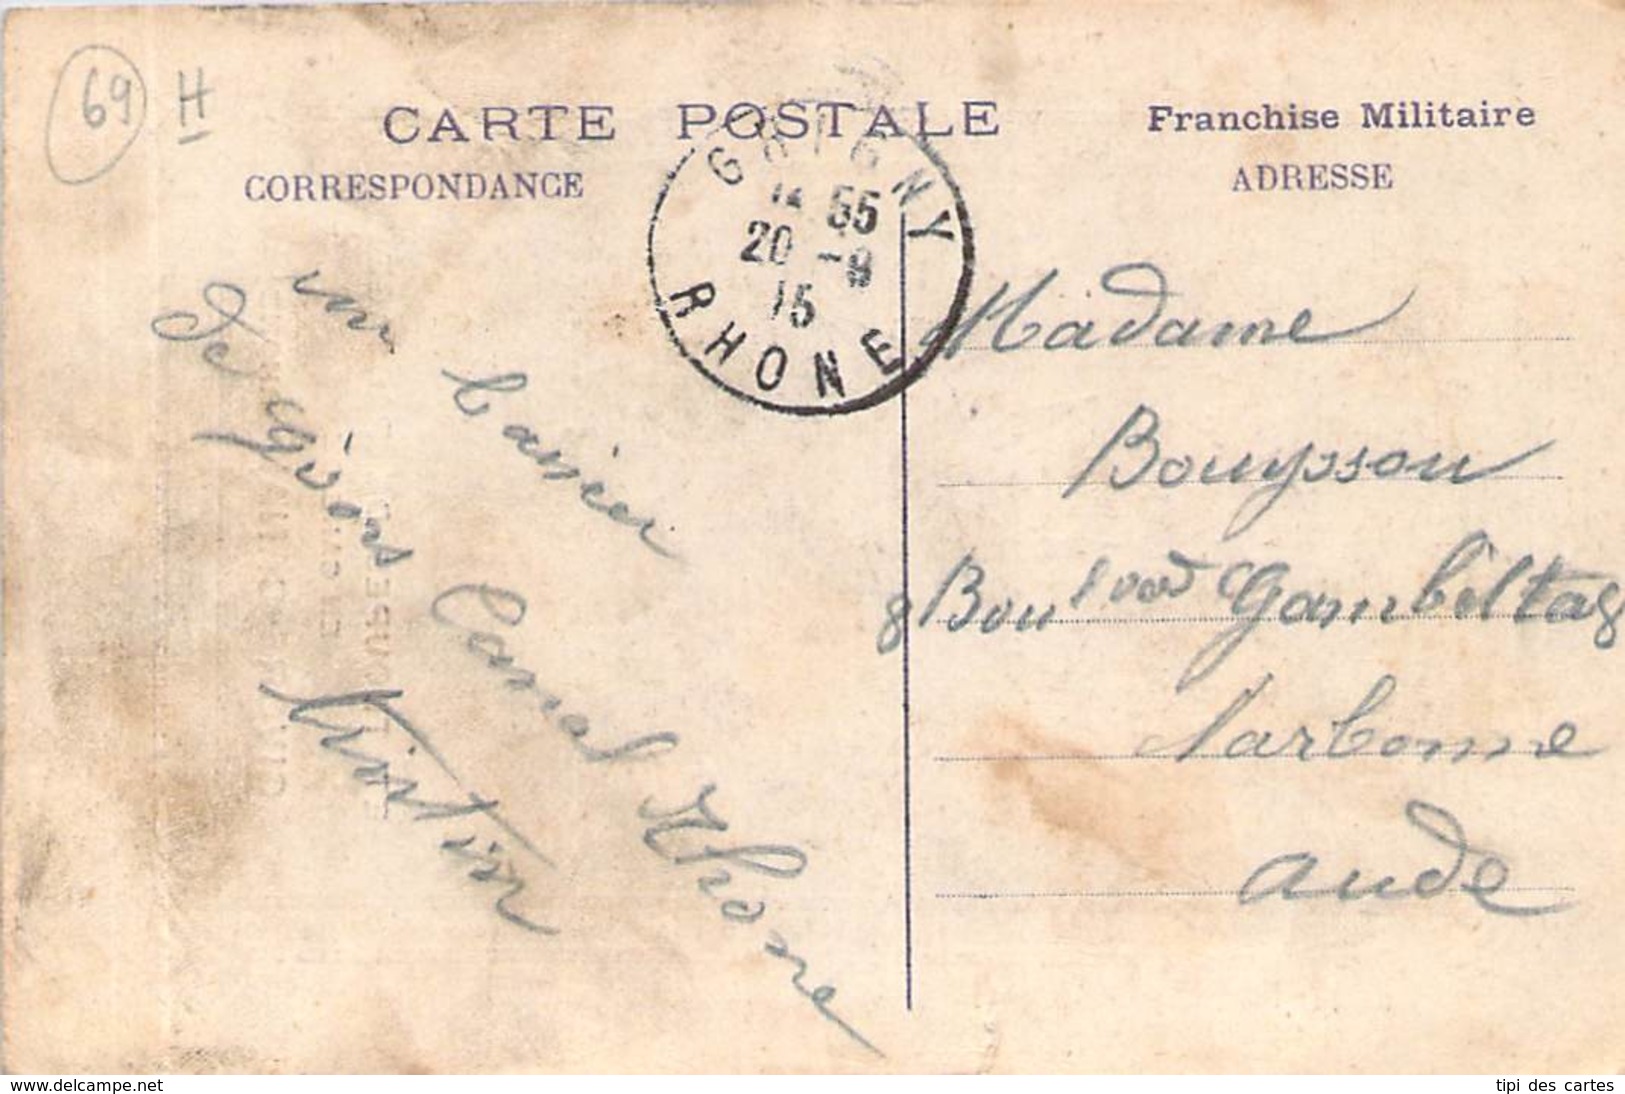 69 H
CARTE POSTALE
CORRESPONDANCE
Franchise Militaire
ADRESSE
GRIGNY
12 55
20 -9
15
RHONE
un
De Givors Canal Rhone
Madame
Bouysson
8 Boulvard Gambelta 8
Narbonne
Aude
www.delcampe.net
tipi des cartes